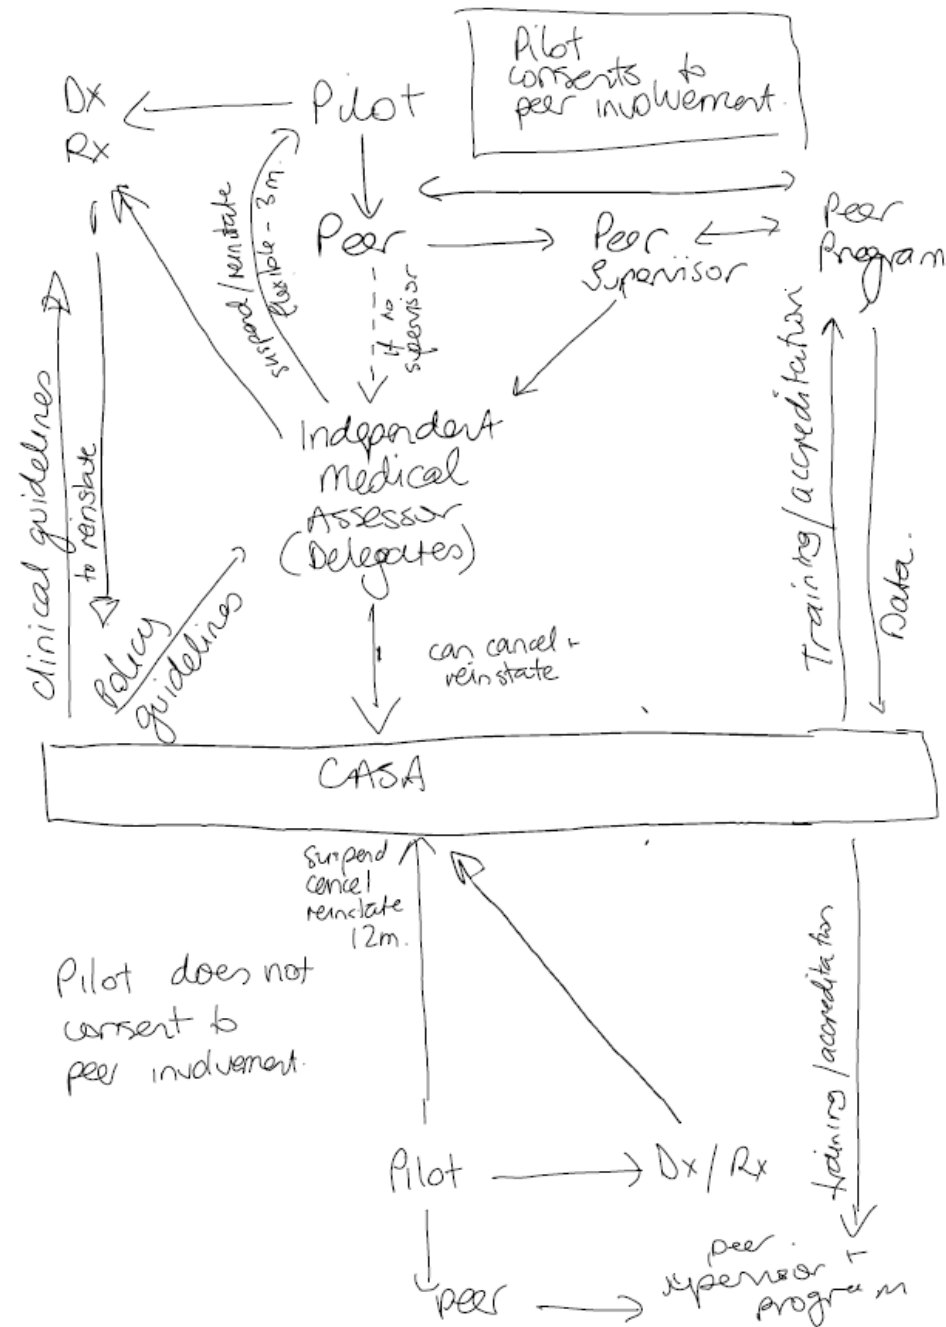 Pilot
consents to
peer involvement.
Dx
Rx
Pilot
suspend/reinstate
flexible - 3m.
Peer
Peer
Supervisor
Peer
Program
if no
supervisor
Independent
Medical
Assessor
(Delegates)
clinical guidelines
to reinstate
Policy
guidelines
can cancel +
reinstate
Training/accreditation
Data.
CASA
suspend
cancel
reinstate
12m.
Pilot does not
consent to
peer involvement.
training/accreditation
Pilot
Dx/Rx
peer
peer
supervisor +
program